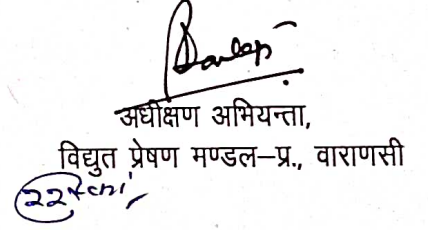 अधीक्षण अभियन्ता,
विद्युत प्रेषण मण्डल–प्र., वाराणसी
22